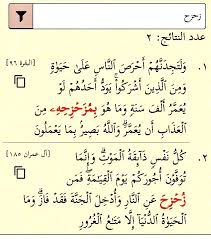 زحزح
عدد النتائج: ٢
١. وَلَتَجِدَنَّهُمْ أَحْرَصَ النَّاسِ عَلَىٰ حَيَوٰةٍ [البقرة ٩٦]
وَمِنَ الَّذِينَ أَشْرَكُوا۟ يَوَدُّ أَحَدُهُمْ لَوْ
يُعَمَّرُ أَلْفَ سَنَةٍ وَمَا هُوَ بِمُزَحْزِحِهِۦ مِنَ
الْعَذَابِ أَن يُعَمَّرَ وَاللَّهُ بَصِيرٌۢ بِمَا يَعْمَلُونَ
٢. كُلُّ نَفْسٍ ذَآئِقَةُ الْمَوْتِ وَإِنَّمَا [آل عمران ١٨٥]
تُوَفَّوْنَ أُجُورَكُمْ يَوْمَ الْقِيَٰمَةِ فَمَن
زُحْزِحَ عَنِ النَّارِ وَأُدْخِلَ الْجَنَّةَ فَقَدْ فَازَ وَمَا
الْحَيَوٰةُ الدُّنْيَآ إِلَّا مَتَٰعُ الْغُرُورِ